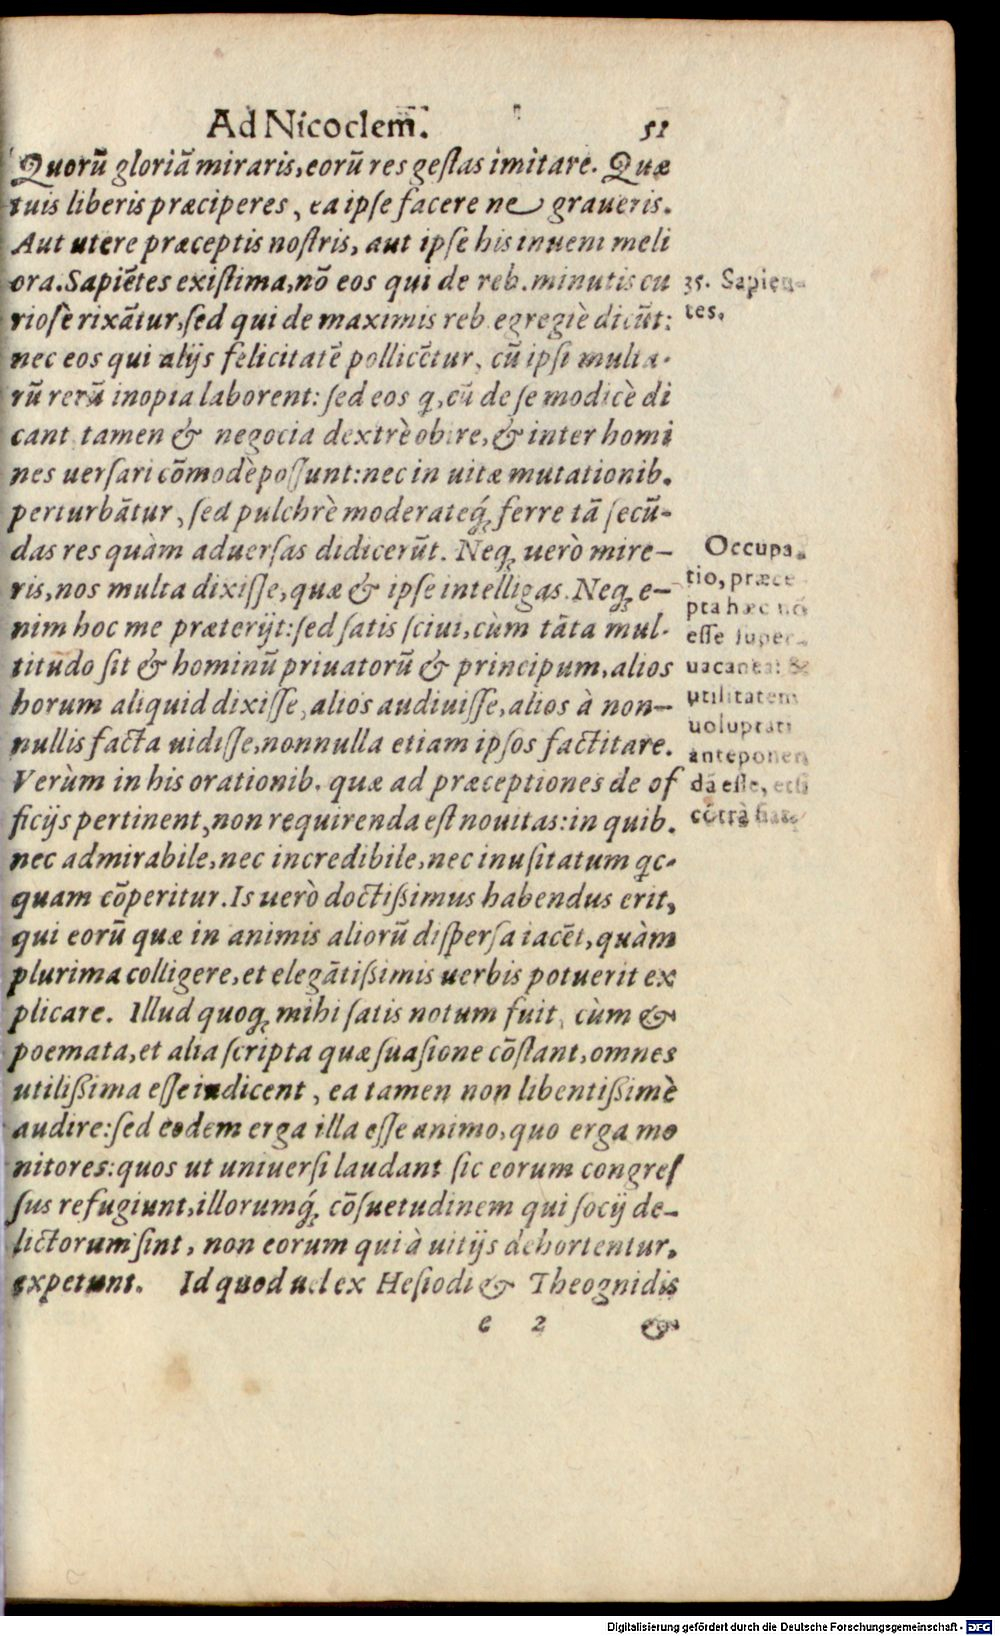 Ad Nicoclem. 51
Quorũ gloriã miraris, eorũ res gestas imitare. Quæ
tuis liberis præciperes, ea ipse facere ne graueris.
Aut utere præceptis nostris, aut ipse his inueni meli
ora. Sapiẽtes existima, nõ eos qui de reb. minutis cu
riosè rixãtur, sed qui de maximis reb. egregiè dicũt:
nec eos qui alijs felicitatẽ pollicẽtur, cũ ipsi multa-
rũ rerũ inopia laborent: sed eos q, cũ de se modicè di
cant, tamen & negocia dextrè obire, & inter homi
nes uersari cõmodè possunt: nec in uitæ mutationib.
perturbãtur, sed pulchrè moderateq́; ferre tã secũ-
das res quàm aduersas didicerũt. Neq; uerò mire-
ris, nos multa dixisse, quæ & ipse intelligas. Neq; e-
nim hoc me præterijt: sed satis sciui, cùm tãta mul-
titudo sit & hominũ priuatorũ & principum, alios
horum aliquid dixisse, alios audiuisse, alios à non-
nullis facta uidisse, nonnulla etiam ipsos factitare.
Verùm in his orationib. quæ ad præceptiones de of
ficijs pertinent, non requirenda est nouitas: in quib.
nec admirabile, nec incredibile, nec inusitatum qc-
quam cõperitur. Is uerò doctißimus habendus erit,
qui eorũ quæ in animis aliorũ dispersa iacẽt, quàm
plurima colligere, et elegãtißimis uerbis potuerit ex
plicare. Illud quoq; mihi satis notum fuit, cùm &
poemata, et alia scripta quæ suasione cõstant, omnes
utilißima esse iudicent, ea tamen non libentißimè
audire: sed eodem erga illa esse animo, quo erga mo
nitores: quos ut uniuersi laudant sic eorum congres
sus refugiunt, illorumq́; cõsuetudinem qui socij de-
lictorum sint, non eorum qui à uitijs dehortentur,
expetunt. Id quod uel ex Hesiodi & Theognidis
e 2 &
35. Sapien-
tes.
Occupa-
tio, præce
pta hæc nõ
esse super-
uacanea: &
utilitatem
uoluptati
anteponen
dã esse, etsi
cõtrà fiat.
Digitalisierung gefördert durch die Deutsche Forschungsgemeinschaft - DFG